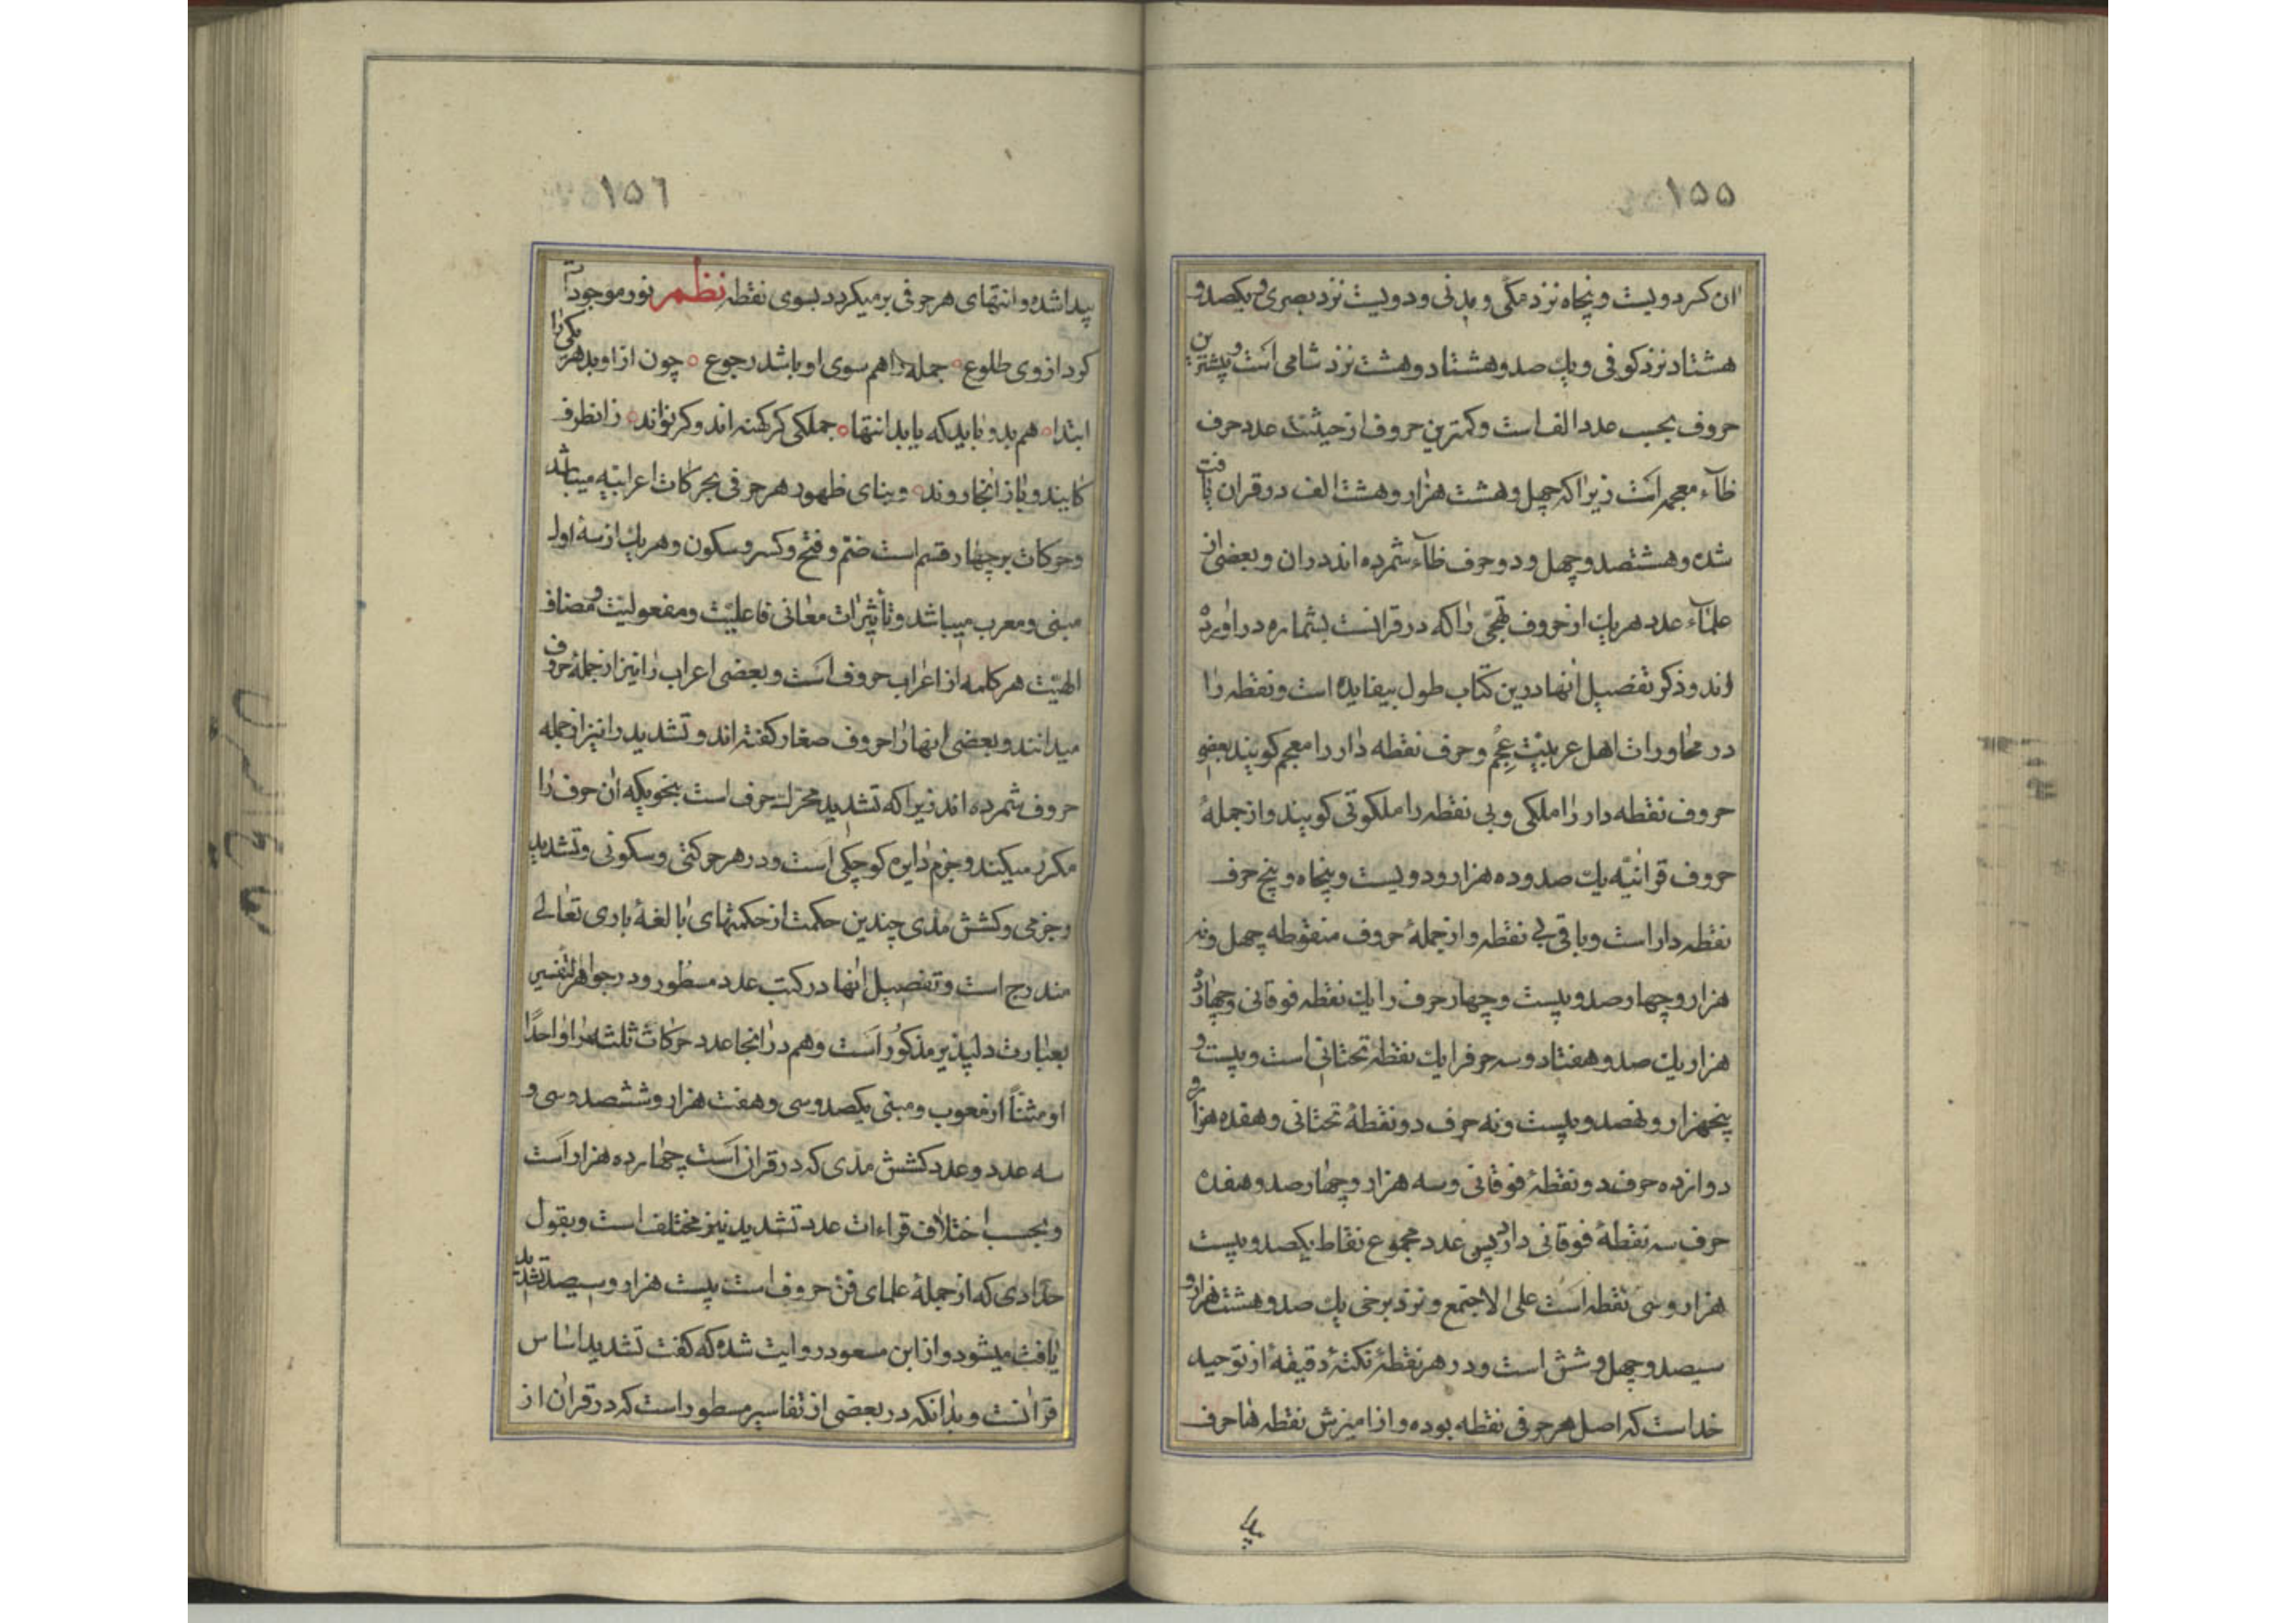 ۱۵۵
ان کسر دویست و پنجاه نزد مکّی و مدنی و دویست نزد بصری و یکصد و
هشتاد نزد کوفی و یك صد و هشتاد و هشت نزد شامی است و بیشترین
حروف بحسب عدد الف است و کمترین حروف از حیثیت عدد حرف
ظآء معجمه است زیرا که چهل و هشت هزار و هشت الف در قران یافت
شده و هشتصد و چهل و دو حرف ظآء شمرده اند دران و بعضی از
علمآء عدد هر یك از حروف تهجّی را که در قرانست بشماره در اورده
اند و ذکر تفصیل انها درین کتاب طول بیفایده است و نقطه را
در محاورات اهل عربیّت عُجم و حرف نقطه دار را معجم کویند بعضی
حروف نقطه دار را ملکی و بی نقطه را ملکوتی کویند و از جملهٔ
حروف قرانیّه یك صد و ده هزار و دویست و پنجاه و پنج حرف
نقطه دار است و باقی بی نقطه و از جملهٔ حروف منقوطه چهل و نه
هزار و چهار صد و بیست و چهار حرف را یك نقطه فوقانی و چهارده
هزار و یك صد و هفتاد و سه حرفرا یك نقطه تحتانی است و بیست و
پنجهزار و نهصد و بیست و نه حرف دو نقطهٔ تحتانی و هفده هزار و
دوازده حرف دو نقطهٔ فوقانی و سه هزار و چهار صد و هفده
حرف سه نقطهٔ فوقانی دارد پس عدد مجموع نقاط یکصد و بیست
هزار و سی نقطه است علی الاجتمع و نزد برخی یك صد و هشت هزار و
سیصد و چهل و شش است و در هر نقطهٔ نکتهٔ دقیقهٔ از توحید
خداست که اصل هر حرفی نقطه بوده و از امیزش نقطه ها حرف
۱۵٦
پیدا شده و انتهای هر حرفی بر میکردد بسوی نقطه نظم نور موجودات
کرد از وی طلوع جمله را هم سوی او باشد رجوع چون از او بد هر یکی را
ابتدا هم بدو باید که یابد انتها جملکی کر کهنه اند و کر نواند زانطرف
کایند و باز انجا روند و بنای ظهور هر حرفی بحرکات اعرابیّه میباشد
و حرکات بر چهار قسم است ضمّ و فتح و کسر و سکون و هر یك از سهٔ اول
مبنی و معرب میباشد و تأثیرات معانی فاعلیّت و مفعولیّت و مضاف
الهیّت هر کلمه از اعراب حروف است و بعضی اعراب را نیز از جملهٔ حروف
میدانند و بعضی انها را حروف صغار کفته اند و تشدید را نیز از جمله
حروف شمرده اند زیرا که تشدید بمنزلهٔ حرف است بنحویکه ان حرف را
مکرر میکند و جزم دایرهٔ کوچکی است و در هر حرکتی و سکونی و تشدید
و جزمی و کشش مدّی چندین حکمت از حکمتهای بالغهٔ باری تعالی
مندرج است و تفصیل انها در کتب عدد مسطور و در جواهر لتفسیر
بعبارت دلپذیر مذکور است و هم در انجا عدد حرکات ثلثه را واحدًا
او مثنّاً از معرب و مبنی یکصد و سی و هفت هزار و ششصد و سی و
سه عدد و عدد کشش مدّی که در قران است چهارده هزار است
و بحسب اختلاف قراءات عدد تشدید نیز مختلف است و بقول
حدّادی که از جملهٔ علمای فن حروف است بیست هزار و سیصد تشدید
یافت میشود و از ابن مسعود روایت شده که کفت تشدید اساس
قرانست و بدانکه در بعضی از تفاسیر مسطور است که در قران از